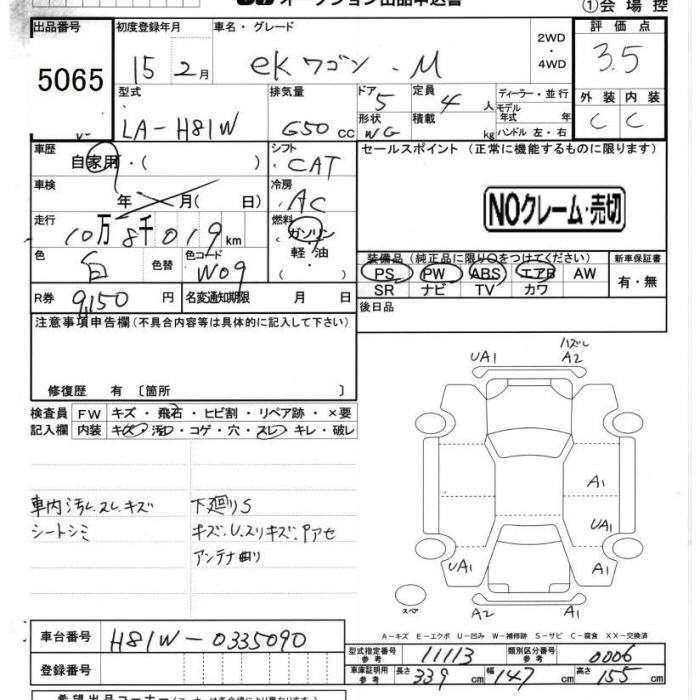 オークション出品申込書
①会場控
出品番号 5065
初度登録年月 15 2月
車名・グレード ekワゴン・M
2WD・4WD
評価点 3.5
型式 LA-H81W
排気量 650 cc
ドア 5
形状 WG
定員 4 人
積載 kg
ディーラー・並行
モデル年式 年
ハンドル 左・右
外装 内装
C C
車歴 自家用・( )
シフト CAT
セールスポイント (正常に機能するものに限ります)
車検 年 月( 日)
冷房 AC
NOクレーム・売切
走行 10万8千019km
燃料 ガソリン・軽油・( )
色 白 色替 色コード W09
装備品(純正品に限り○をつけてください)
PS PW ABS エアB AW
SR ナビ TV カワ
新車保証書 有・無
R券 9,150 円 名変通知期限 月 日
後日品
注意事項申告欄(不具合内容等は具体的に記入して下さい)
修復歴 有 〔箇所 〕
検査員記入欄
FW キズ・飛石・ヒビ割・リペア跡・×要
内装 キズ・汚レ・コゲ・穴・スレ・キレ・破レ
車内汚レ.スレ.キズ
シートシミ
下廻りS
キズ.U.スリキズ.Pアセ
アンテナ曲り
UA1
ハズレ
A2
A1
UA1
UA1
A1
スペア
A2
A1
A-キズ E-エクボ U-凹み W-補修跡 S-サビ C-腐食 XX-交換済
車台番号 H81W-0335090
登録番号
型式指定番号 参考 11113
類別区分番号 参考 0006
車庫証明用 参考 長さ 339 cm 幅 147 cm 高さ 155 cm